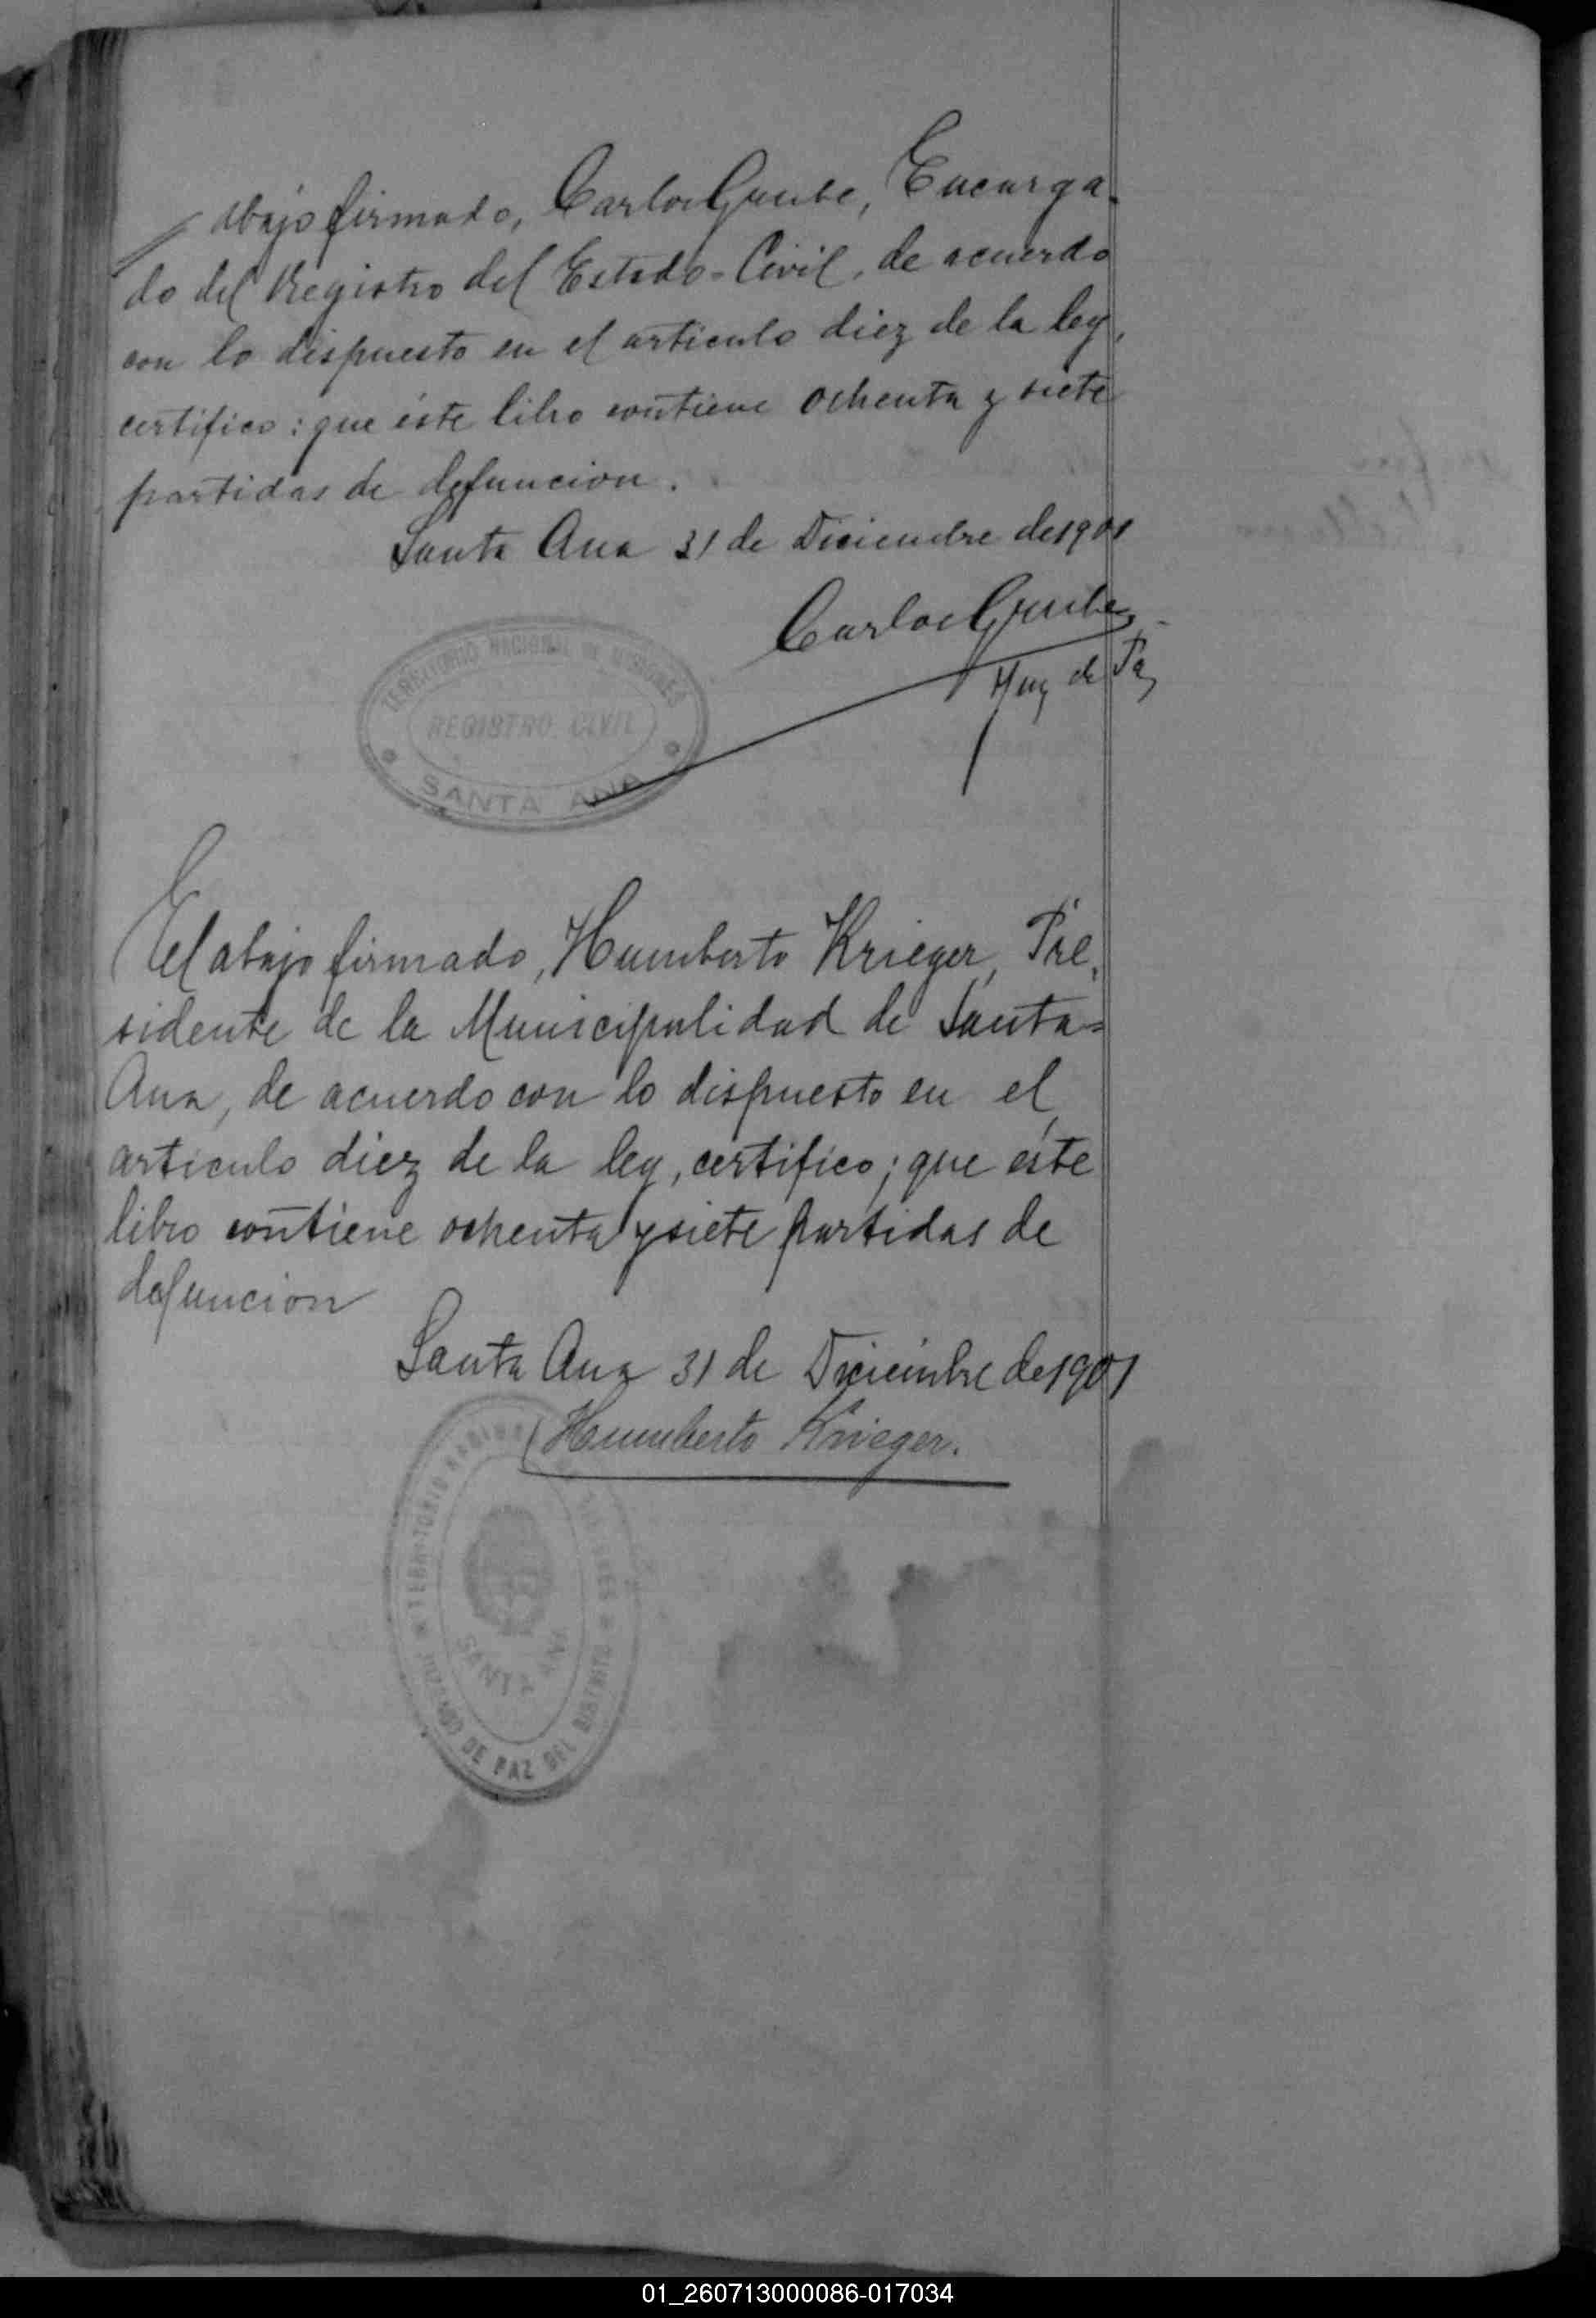 abajo firmado, Carlos Grube, Encarga-
do del Registro del Estado-Civil, de acuerdo
con lo dispuesto en el articulo diez de la ley,
certifico: que éste libro contiene ochenta y siete
partidas de defuncion.
Santa Ana 31 de Diciembre de 1901
Carlos Grube
Juez de Paz
TERRITORIO NACIONAL DE MISIONES
REGISTRO CIVIL
SANTA ANA
El abajo firmado, Humberto Krieger, Pre-
sidente de la Municipalidad de Santa-
Ana, de acuerdo con lo dispuesto en el
articulo diez de la ley, certifico; que éste
libro contiene ochenta y siete partidas de
defuncion
Santa Ana 31 de Diciembre de 1901
Humberto Krieger.
TERRITORIO
SANTA ANA
JUZGADO DE PAZ DEL DISTRITO
01_260713000086-017034